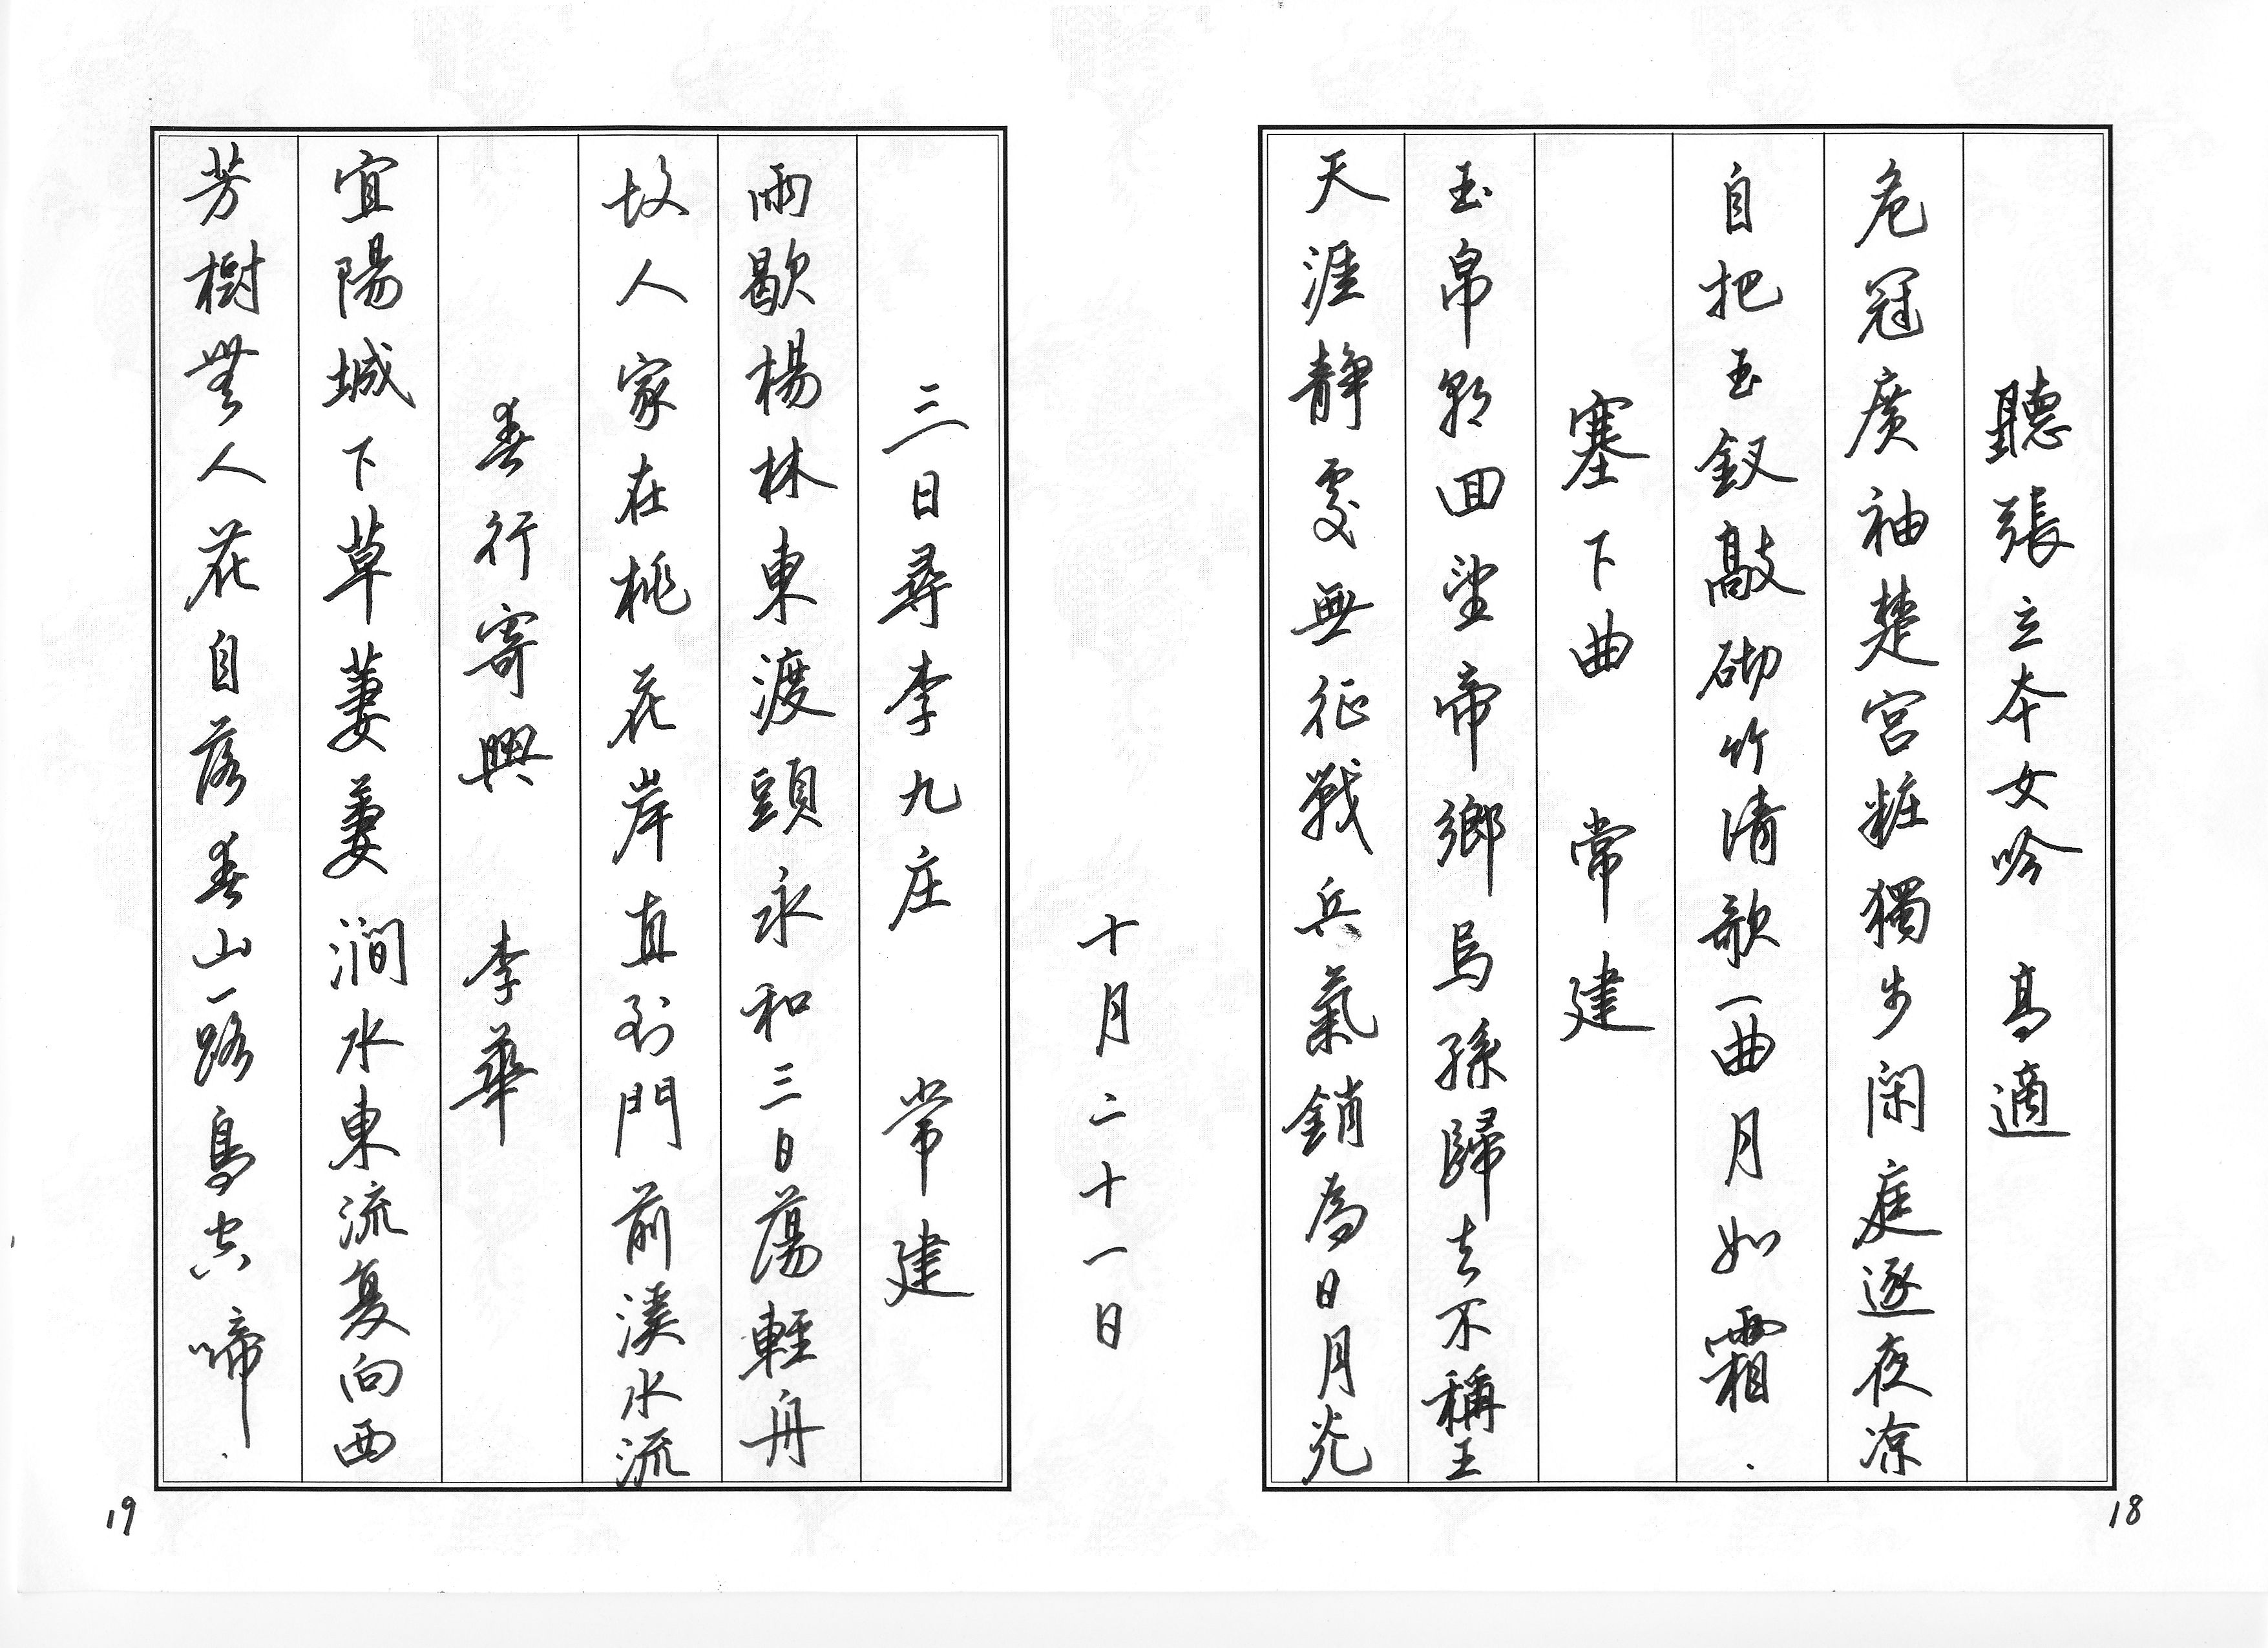 聽張立本女吟 高適
危冠廣袖楚宮粧獨步閑庭逐夜凉
自把玉釵敲砌竹清歌一曲月如霜.
塞下曲 常建
玉帛朝回望帝鄉烏孫歸去不稱王
天涯靜處無征戰兵氣銷為日月光
18
十月二十一日
三日尋李九庄 常建
雨歇楊林東渡頭永和三日蕩輕舟
故人家在桃花岸直到門前溪水流
春行寄興 李華
宜陽城下草萋萋澗水東流复向西
芳樹無人花自落春山一路鳥空啼.
19